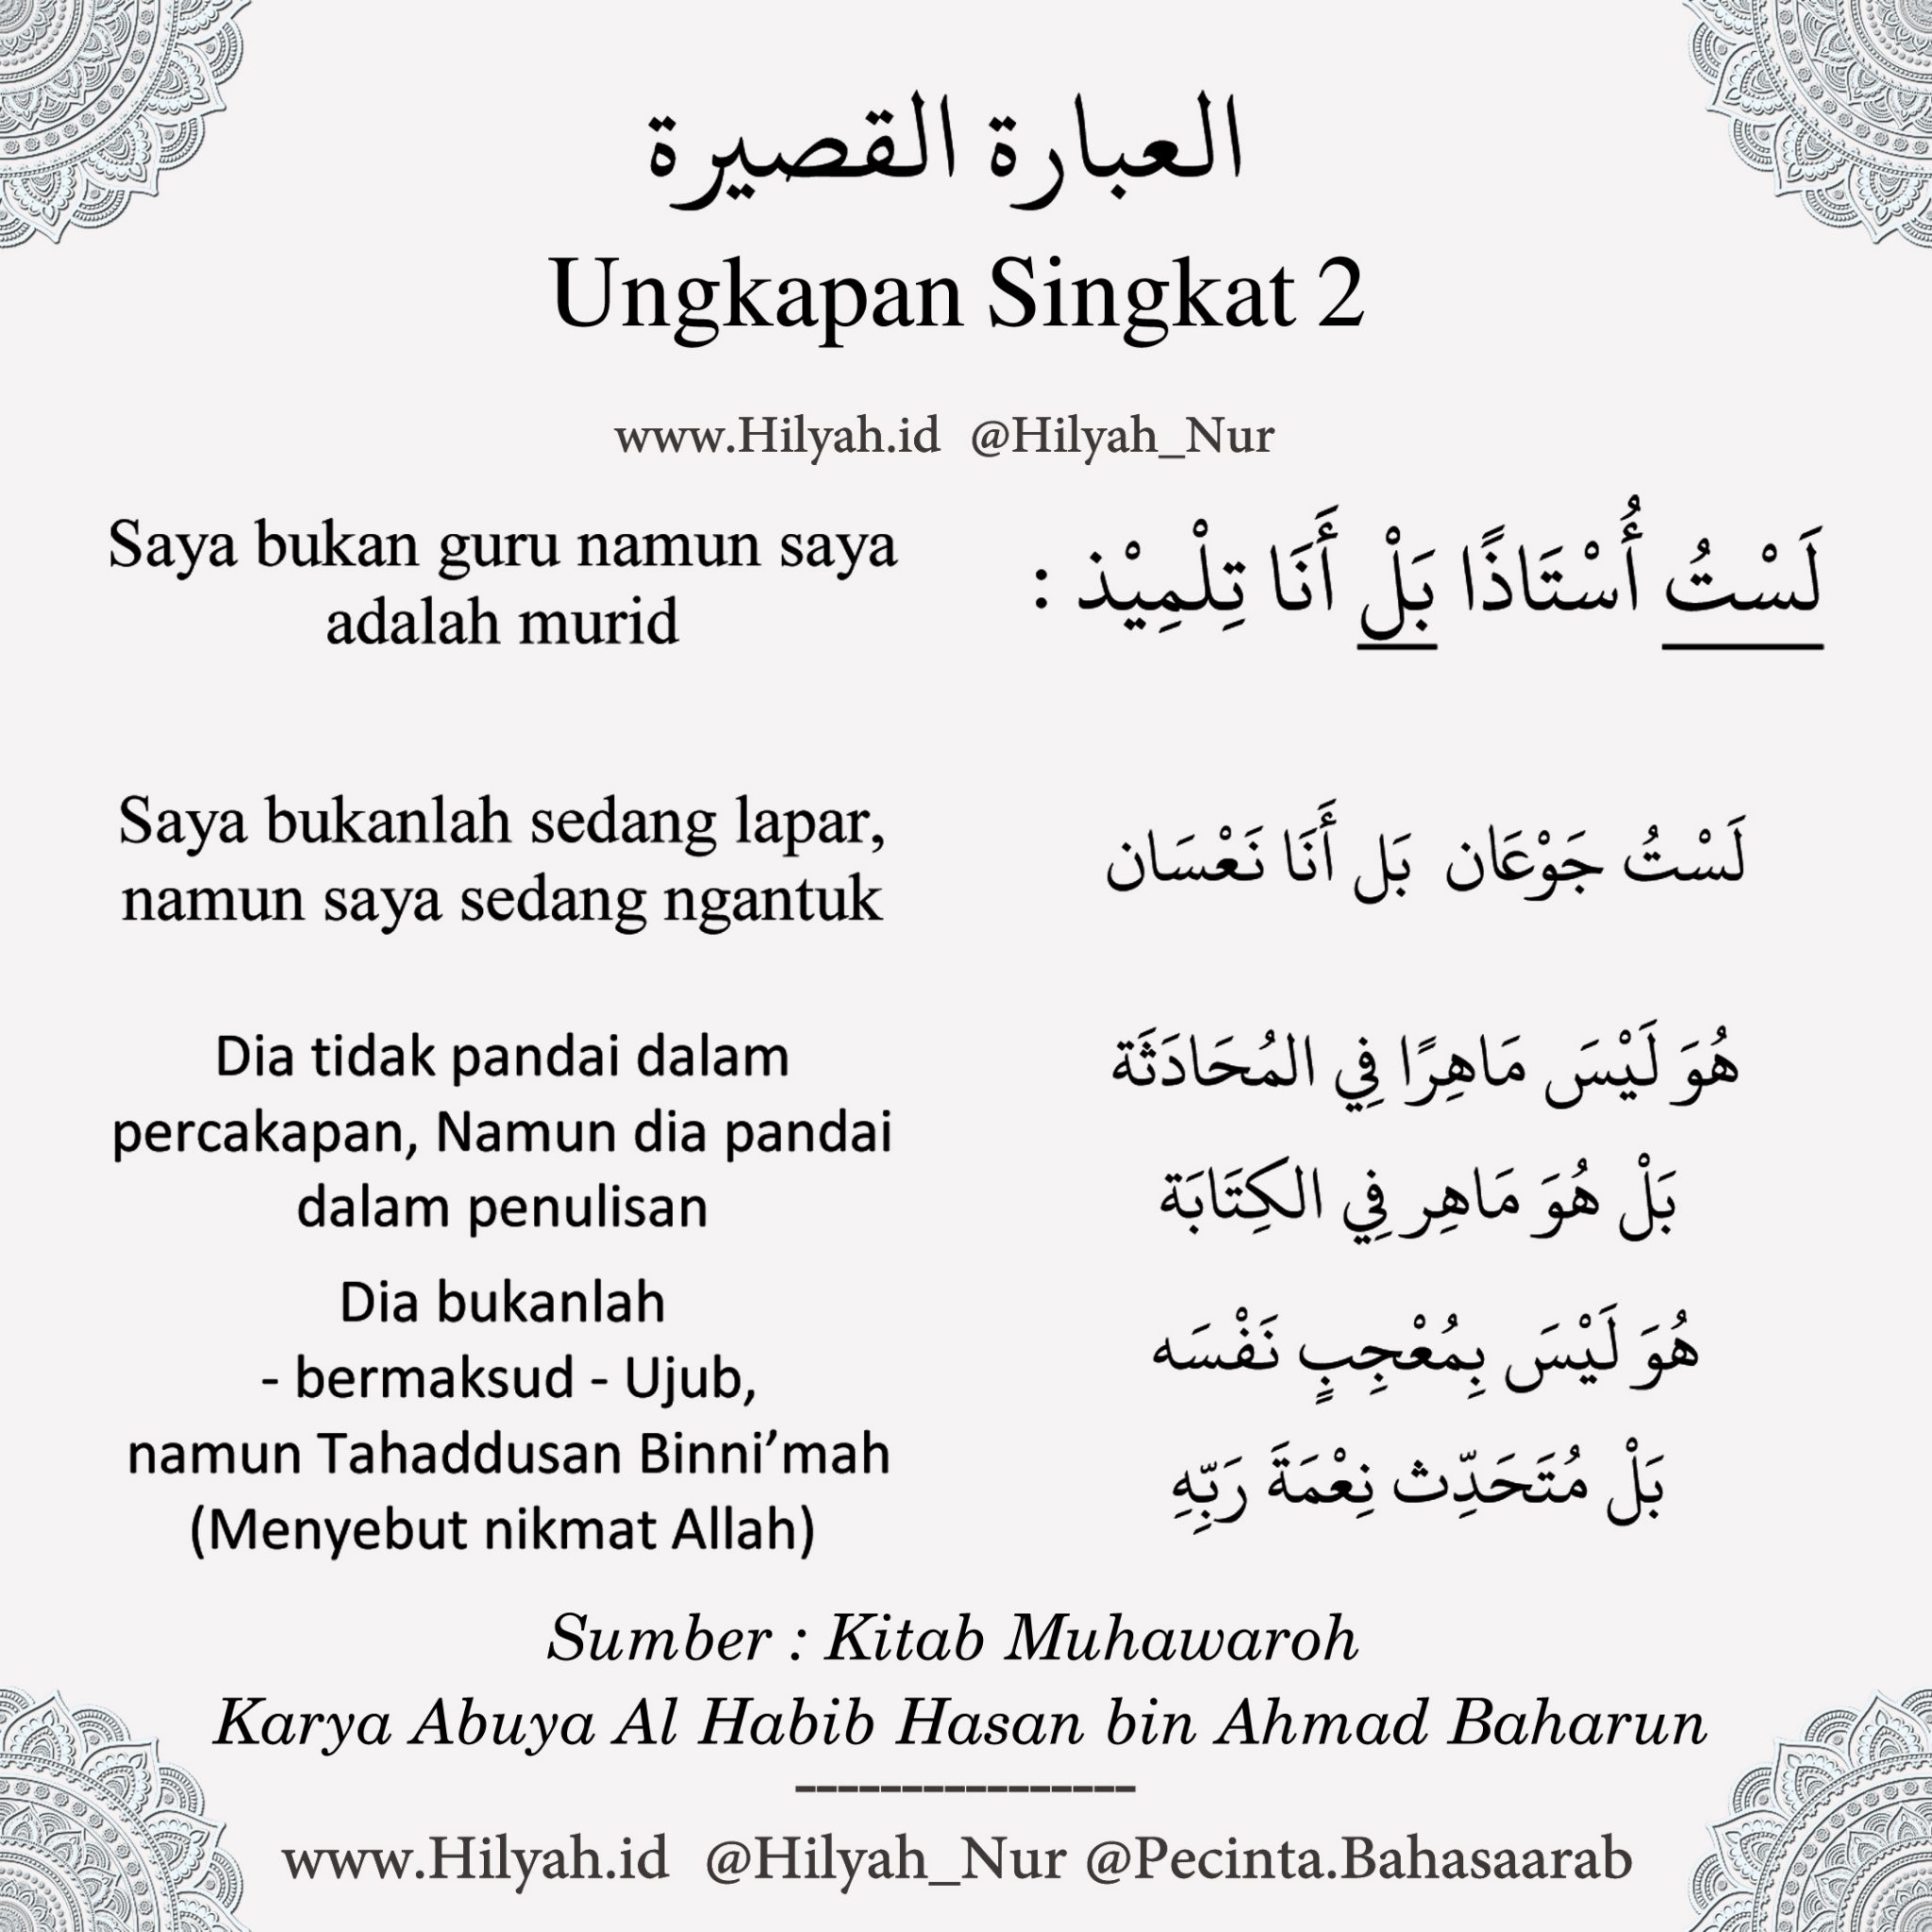 العبارة القصيرة
Ungkapan Singkat 2
www.Hilyah.id @Hilyah_Nur
لَسْتُ أُسْتَاذًا بَلْ أَنَا تِلْمِيْذ :
Saya bukan guru namun saya
adalah murid
لَسْتُ جَوْعَان بَل أَنَا نَعْسَان
Saya bukanlah sedang lapar,
namun saya sedang ngantuk
هُوَ لَيْسَ مَاهِرًا فِي المُحَادَثَة
بَلْ هُوَ مَاهِر فِي الكِتَابَة
Dia tidak pandai dalam
percakapan, Namun dia pandai
dalam penulisan
هُوَ لَيْسَ بِمُعْجِبٍ نَفْسَه
بَلْ مُتَحَدِّث نِعْمَةَ رَبِّهِ
Dia bukanlah
- bermaksud - Ujub,
namun Tahaddusan Binni’mah
(Menyebut nikmat Allah)
Sumber : Kitab Muhawaroh
Karya Abuya Al Habib Hasan bin Ahmad Baharun
----------------
www.Hilyah.id @Hilyah_Nur @Pecinta.Bahasaarab